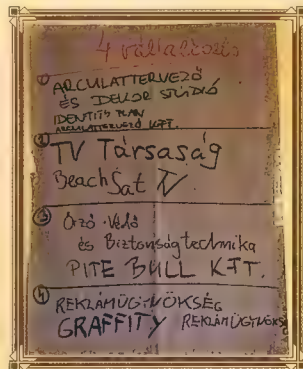 4 vállalkozás
① ARCULATTERVEZŐ
ÉS DEKOR STÚDIÓ
IDENTITY PLAN
ARCULATTERVEZŐ KFT.
② TV Társaság
BeachSat TV
③ Őrző-Védő
és Biztonságtechnika
PITE BULL KFT.
④ REKLÁMÜGYNÖKSÉG
GRAFFITY REKLÁMÜGYNÖKSÉG